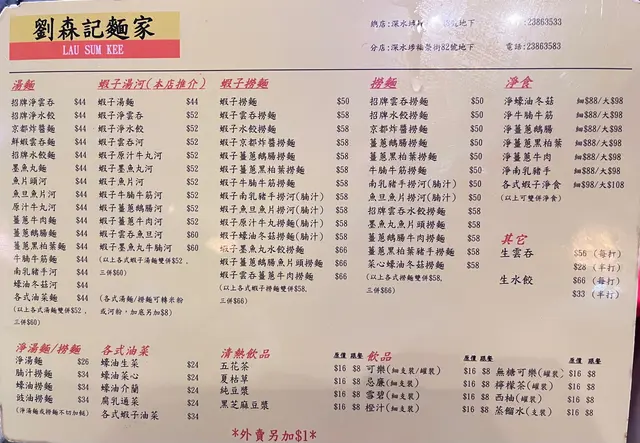 劉森記麵家
LAU SUM KEE
總店:深水埗 地下 電話: 23863533
分店:深水埗福榮街82號地下 電話:23863583
湯麵
招牌淨雲吞 $44
招牌淨水餃 $44
京都炸醬麵 $44
鮮蝦雲吞麵 $44
招牌水餃麵 $44
墨魚丸麵 $44
魚片頭河 $44
魚旦魚片河 $44
原汁牛丸河 $44
薑蔥牛肉麵 $44
薑蔥鵝腸麵 $44
薑蔥黑柏葉麵 $44
牛腩牛筋麵 $44
南乳豬手河 $44
蠔油冬菇河 $44
各式油菜麵 $44
(以上各式湯麵雙併$52,
三併$60)
蝦子湯河(本店推介)
蝦子湯麵 $44
蝦子淨雲吞 $52
蝦子淨水餃 $52
蝦子雲吞河 $52
蝦子原汁牛丸河 $52
蝦子墨魚丸河 $52
蝦子魚片河 $52
蝦子魚旦魚片河 $52
蝦子牛腩牛筋河 $52
蝦子薑蔥鵝腸河 $52
蝦子薑蔥牛肉河 $52
蝦子雲吞魚旦河 $60
蝦子墨魚丸牛腩河 $60
(以上各式蝦子湯麵雙併$52,
三併$60)
(各式湯麵/撈麵可轉米粉
或河粉,加底另加$8)
蝦子撈麵
蝦子撈麵 $50
蝦子雲吞撈麵 $58
蝦子水餃撈麵 $58
蝦子京都炸醬撈麵 $58
蝦子薑蔥鵝腸撈麵 $58
蝦子薑蔥黑柏葉撈麵 $58
蝦子牛腩牛筋撈麵 $58
蝦子南乳豬手撈河(腩汁) $58
蝦子魚旦魚片撈河(腩汁) $58
蝦子原汁牛丸撈麵(腩汁) $58
蝦子蠔油冬菇撈麵(腩汁) $58
蝦子墨魚丸水餃撈麵 $66
蝦子薑蔥鵝腸魚片頭撈麵 $66
蝦子雲吞薑蔥牛肉撈麵 $66
(以上各式蝦子撈麵雙併$58,
三併$66)
撈麵
招牌雲吞撈麵 $50
招牌水餃撈麵 $50
京都炸醬撈麵 $50
薑蔥鵝腸撈麵 $50
薑蔥黑柏葉撈麵 $50
牛腩牛筋撈麵 $50
南乳豬手撈河(腩汁) $50
魚旦魚片撈河(腩汁) $50
招牌雲吞水餃撈麵 $58
墨魚丸魚片頭撈麵 $58
薑蔥鵝腸牛肉撈麵 $58
薑蔥黑柏葉豬手撈麵 $58
菜心蠔油冬菇撈麵 $58
(以上各式撈麵雙併$58,
三併$66)
淨食
淨蠔油冬菇 細$88/大$98
淨牛腩牛筋 細$88/大$98
淨薑蔥鵝腸 細$88/大$98
淨薑蔥黑柏葉 細$88/大$98
淨薑蔥牛肉 細$88/大$98
淨南乳豬手 細$88/大$98
各式蝦子淨食 細$98/大$108
(以上可雙併淨食)
其它
生雲吞 $56 (每打)
$28 (半打)
生水餃 $66 (每打)
$33 (半打)
淨湯麵/撈麵
淨湯麵 $26
腩汁撈麵 $34
蠔油撈麵 $34
豉油撈麵 $34
(淨湯麵或撈麵不切加餸)
各式油菜
蠔油生菜 $24
蠔油菜心 $24
蠔油介蘭 $24
腐乳通菜 $24
各式蝦子油菜 $34
清熱飲品 原價 跟餐
五花茶 $16 $8
夏枯草 $16 $8
純豆漿 $16 $8
黑芝麻豆漿 $16 $8
飲品 原價 跟餐 原價 跟餐
可樂(細支裝/罐裝) $16 $8 無糖可樂(罐裝) $16 $8
忌廉(細支裝) $16 $8 檸檬茶(罐裝) $16 $8
雪碧(細支裝) $16 $8 西柚(罐裝) $16 $8
橙汁(細支裝) $16 $8 蒸餾水(支裝) $16 $8
*外賣另加$1*